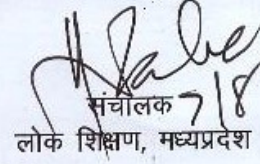 संचालक 7/8
लोक शिक्षण, मध्यप्रदेश